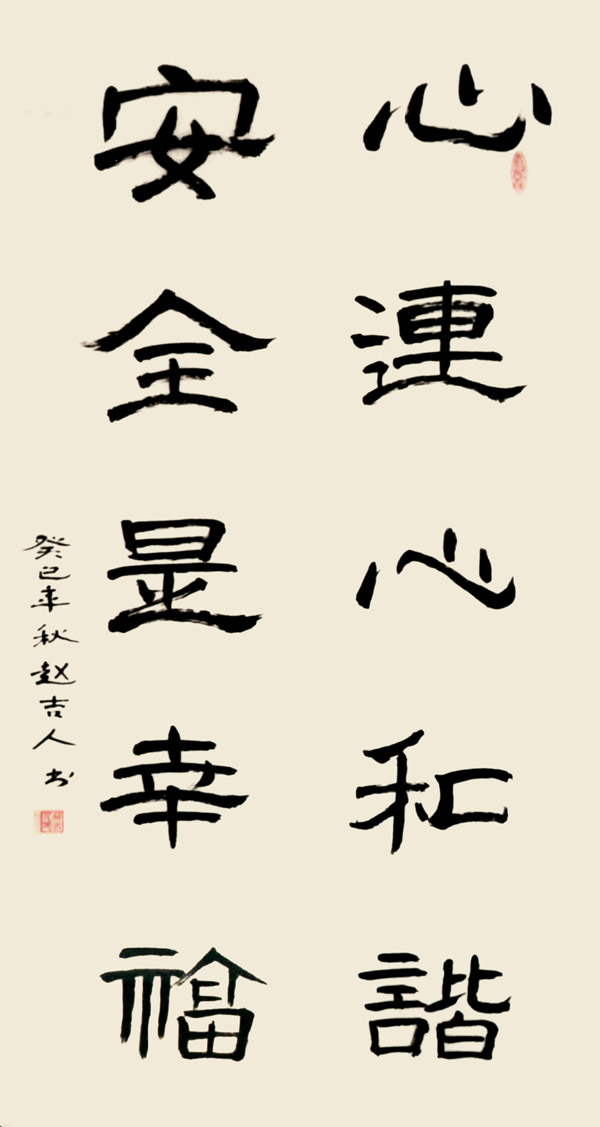 心連心和諧
安全是幸福
癸巳年秋赵吉人书